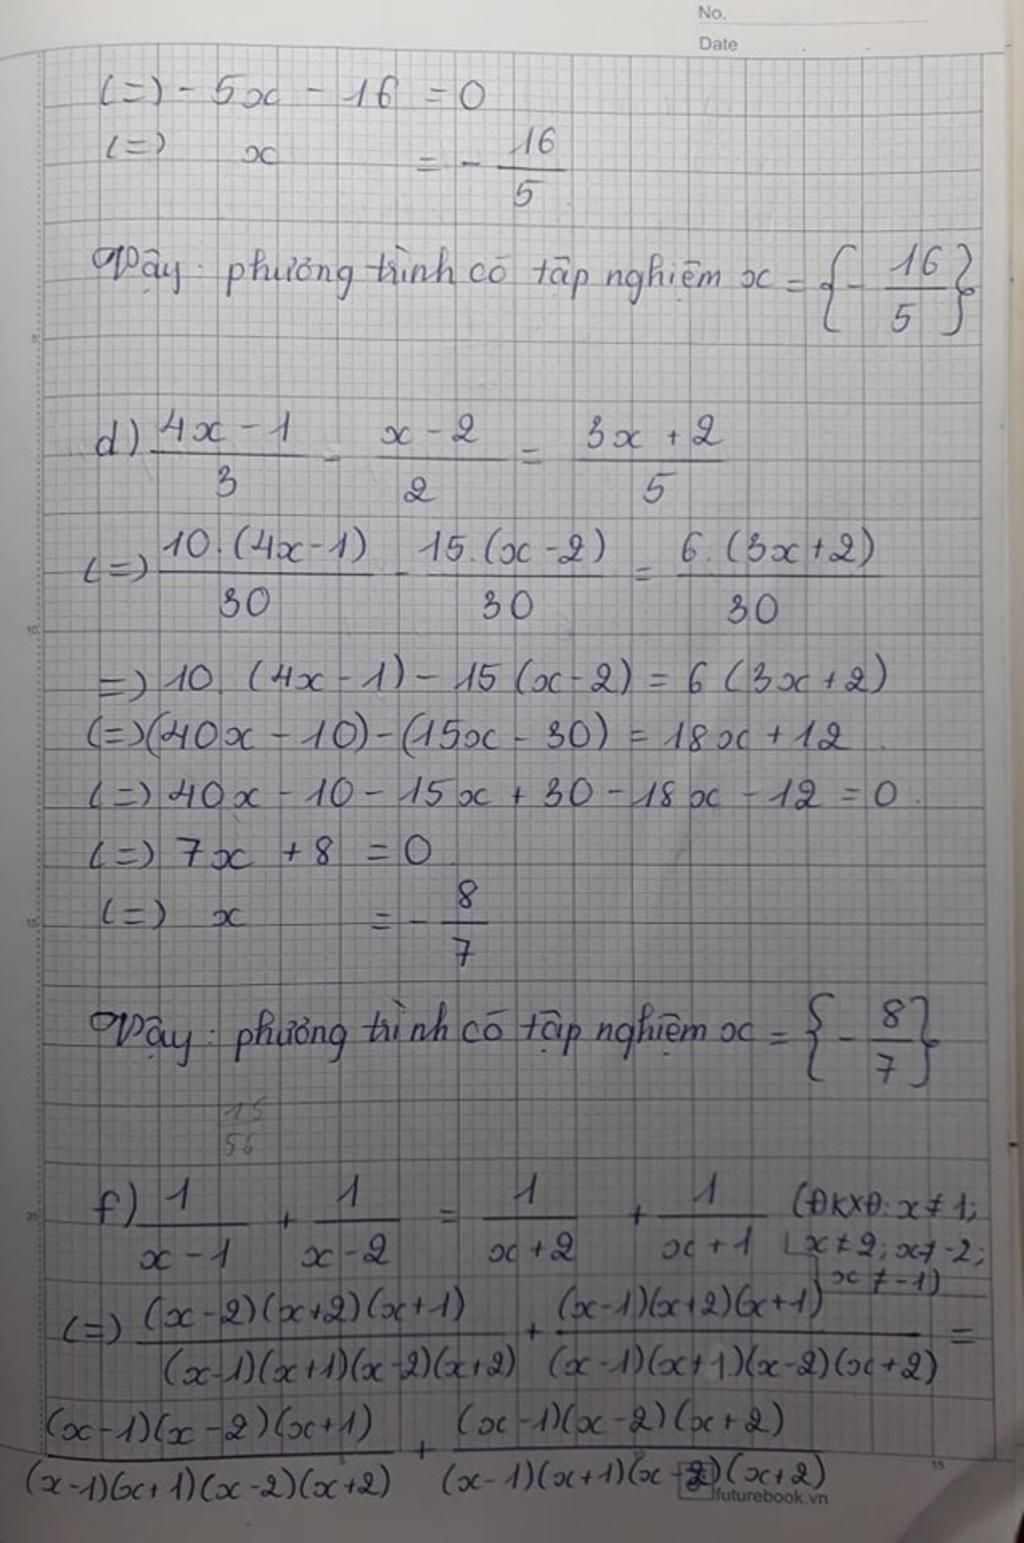 No.
Date
(=) - 5x - 16 = 0
(=) x = - 16/5
Vậy: phương trình có tập nghiệm x = {- 16/5}
d) (4x - 1)/3 - (x - 2)/2 = (3x + 2)/5
(=) 10.(4x-1)/30 - 15.(x-2)/30 = 6.(3x+2)/30
=) 10.(4x-1) - 15(x-2) = 6(3x+2)
(=) (40x - 10) - (15x - 30) = 18x + 12
(=) 40x - 10 - 15x + 30 - 18x - 12 = 0
(=) 7x + 8 = 0
(=) x = - 8/7
Vậy: phương trình có tập nghiệm x = {- 8/7}
15
56
f) 1/(x-1) + 1/(x-2) = 1/(x+2) + 1/(x+1) (ĐKXĐ: x ≠ 1;
x ≠ 2; x ≠ -2;
x ≠ -1)
(=) (x-2)(x+2)(x+1)/(x-1)(x+1)(x-2)(x+2) + (x-1)(x+2)(x+1)/(x-1)(x+1)(x-2)(x+2) =
(x-1)(x-2)(x+1)/(x-1)(x+1)(x-2)(x+2) + (x-1)(x-2)(x+2)/(x-1)(x+1)(x-2)(x+2)
futurebook.vn